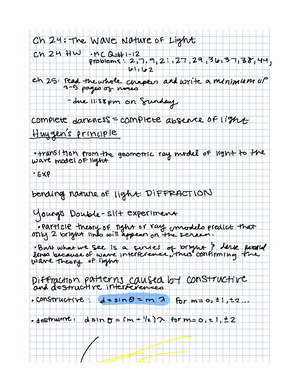 Ch 24: The WAVE Nature of Light
Ch 24 HW • MC Q# 1-12
problems: 2, 7, 9, 21, 27, 29, 36, 37, 38, 44,
61, 62
Ch 25: Read the whole chapter and write a minimum of
pages of notes
- due 11:58pm on Sunday
complete darkness = complete absence of light
Huygen's principle
• transition from the geometric ray model of light to the
wave model of light
• EXP
bending nature of light DIFFRACTION
Young's Double-slit experiment
• Particle theory of light or ray models predict that
only 2 bright lines will appear on the screen.
• But what we see is a series of bright &
zeros because of wave interference, thus confirming the
wave theory of light
Diffraction patterns caused by constructive
and destructive interference
• constructive: d sin θ = m λ for m = 0, ±1, ±2...
• destructive: d sin θ = (m + 1/2) λ for m = 0, ±1, ±2